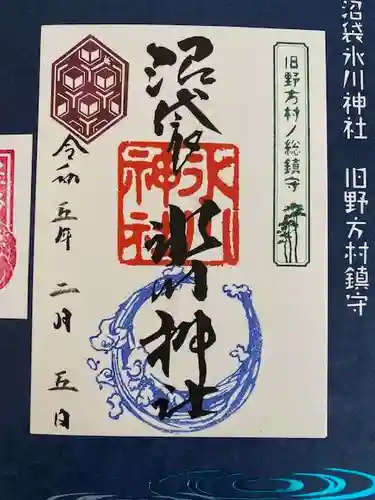 沼袋氷川神社 旧野方村鎮守
旧野方村ノ総鎮守
沼袋氷川神社
氷川神社
令和五年二月五日